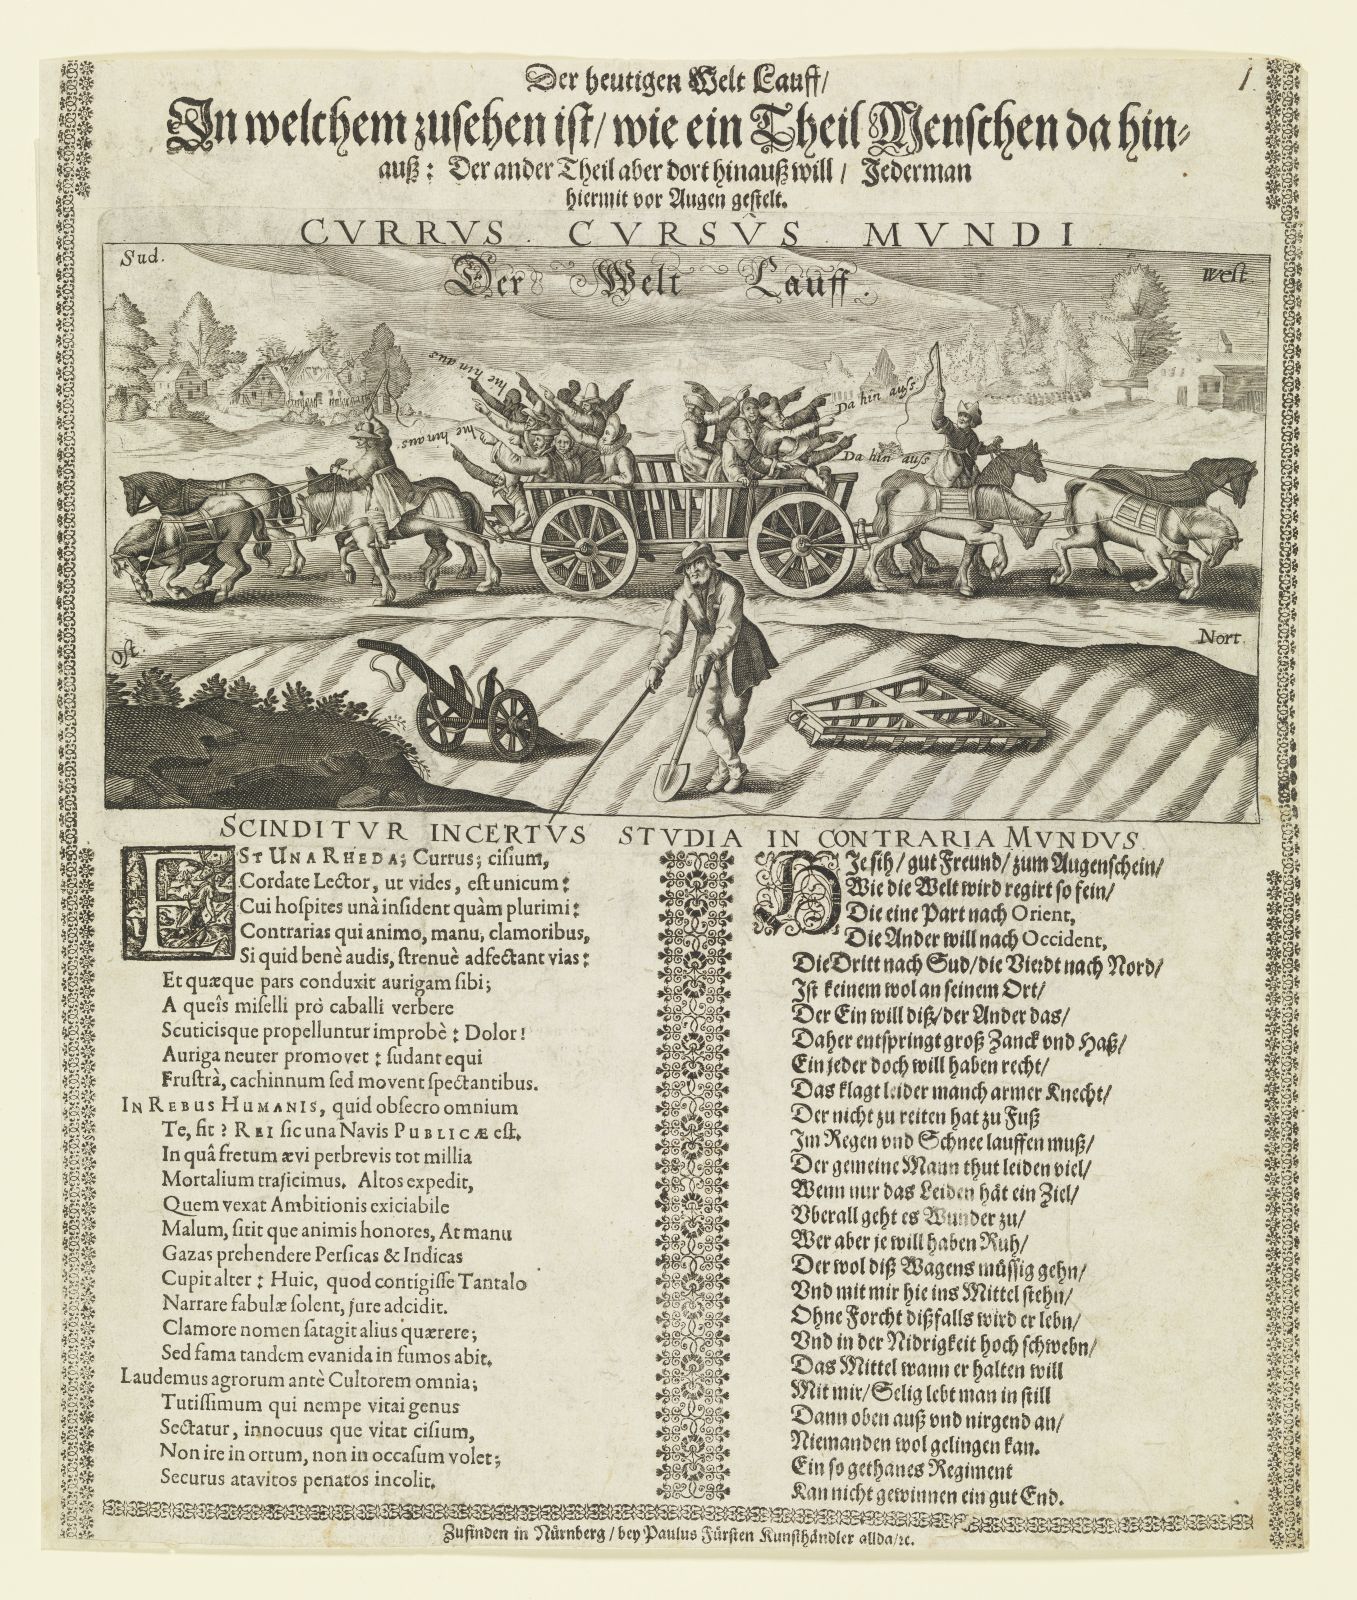 1.
Der heutigen Welt Lauff/
In welchem zusehen ist/ wie ein Theil Menschen da hin-
auß: Der ander Theil aber dort hinauß will/ Jederman
hiermit vor Augen gestelt.
CVRRVS. CVRSÛS. MVNDI
Sud.
Der Welt Lauff.
west
hie hin aus
hie hin aus.
Da hin auſs
Da hin auſs
Ost.
Nort.
SCINDITVR INCERTVS STVDIA IN CONTRARIA MVNDVS.
EST UNA RHEDA; Currus; cisium,
Cordate Lector, ut vides, est unicum:
Cui hospites unà insident quàm plurimi:
Contrarias qui animo, manu, clamoribus,
Si quid benè audis, strenuè adfectant vias:
Et quæque pars conduxit aurigam sibi;
A queîs miselli prò caballi verbere
Scuticisque propelluntur improbè: Dolor!
Auriga neuter promovet: sudant equi
Frustrà, cachinnum sed movent spectantibus.
IN REBUS HUMANIS, quid obsecro omnium
Te, sit? REI sic una Navis PUBLICÆ est.
In quâ fretum ævi perbrevis tot millia
Mortalium trajicimus. Altos expedit,
Quem vexat Ambitionis exiciabile
Malum, sitit que animis honores, At manu
Gazas prehendere Persicas & Indicas
Cupit alter: Huic, quod contigisse Tantalo
Narrare fabulæ solent, jure adcidit.
Clamore nomen satagit alius quærere;
Sed fama tandem evanida in fumos abit.
Laudemus agrorum antè Cultorem omnia;
Tutissimum qui nempe vitai genus
Sectatur, innocuus que vitat cisium,
Non ire in ortum, non in occasum volet;
Securus atavitos penatos incolit.
HJe sih/ gut Freund/ zum Augenschein/
Wie die Welt wird regirt so fein/
Die eine Part nach Orient,
Die Ander will nach Occident,
Die Dritt nach Sud/ die Vierdt nach Nord/
Ist keinem wol an seinem Ort/
Der Ein will diß/ der Ander das/
Daher entspringt groß Zanck vnd Haß/
Ein jeder doch will haben recht/
Das klagt leider manch armer Knecht/
Der nicht zu reiten hat zu Fuß
Im Regen vnd Schnee lauffen muß/
Der gemeine Mann thut leiden viel/
Wenn nur das Leiden hät ein Ziel/
Vberall geht es Wunder zu/
Wer aber je will haben Ruh/
Der wol diß Wagens müssig gehn/
Vnd mit mir hie ins Mittel stehn/
Ohne Forcht dißfalls wird er lebn/
Vnd in der Nidrigkeit hoch schwebn/
Das Mittel wann er halten will
Mit mir/ Selig lebt man in still
Dann oben auß vnd nirgend an/
Niemanden wol gelingen kan.
Ein so gethanes Regiment
Kan nicht gewinnen ein gut End.
Zufinden in Nürnberg/ bey Paulus Fürsten Kunsthändler allda/ ꝛc.